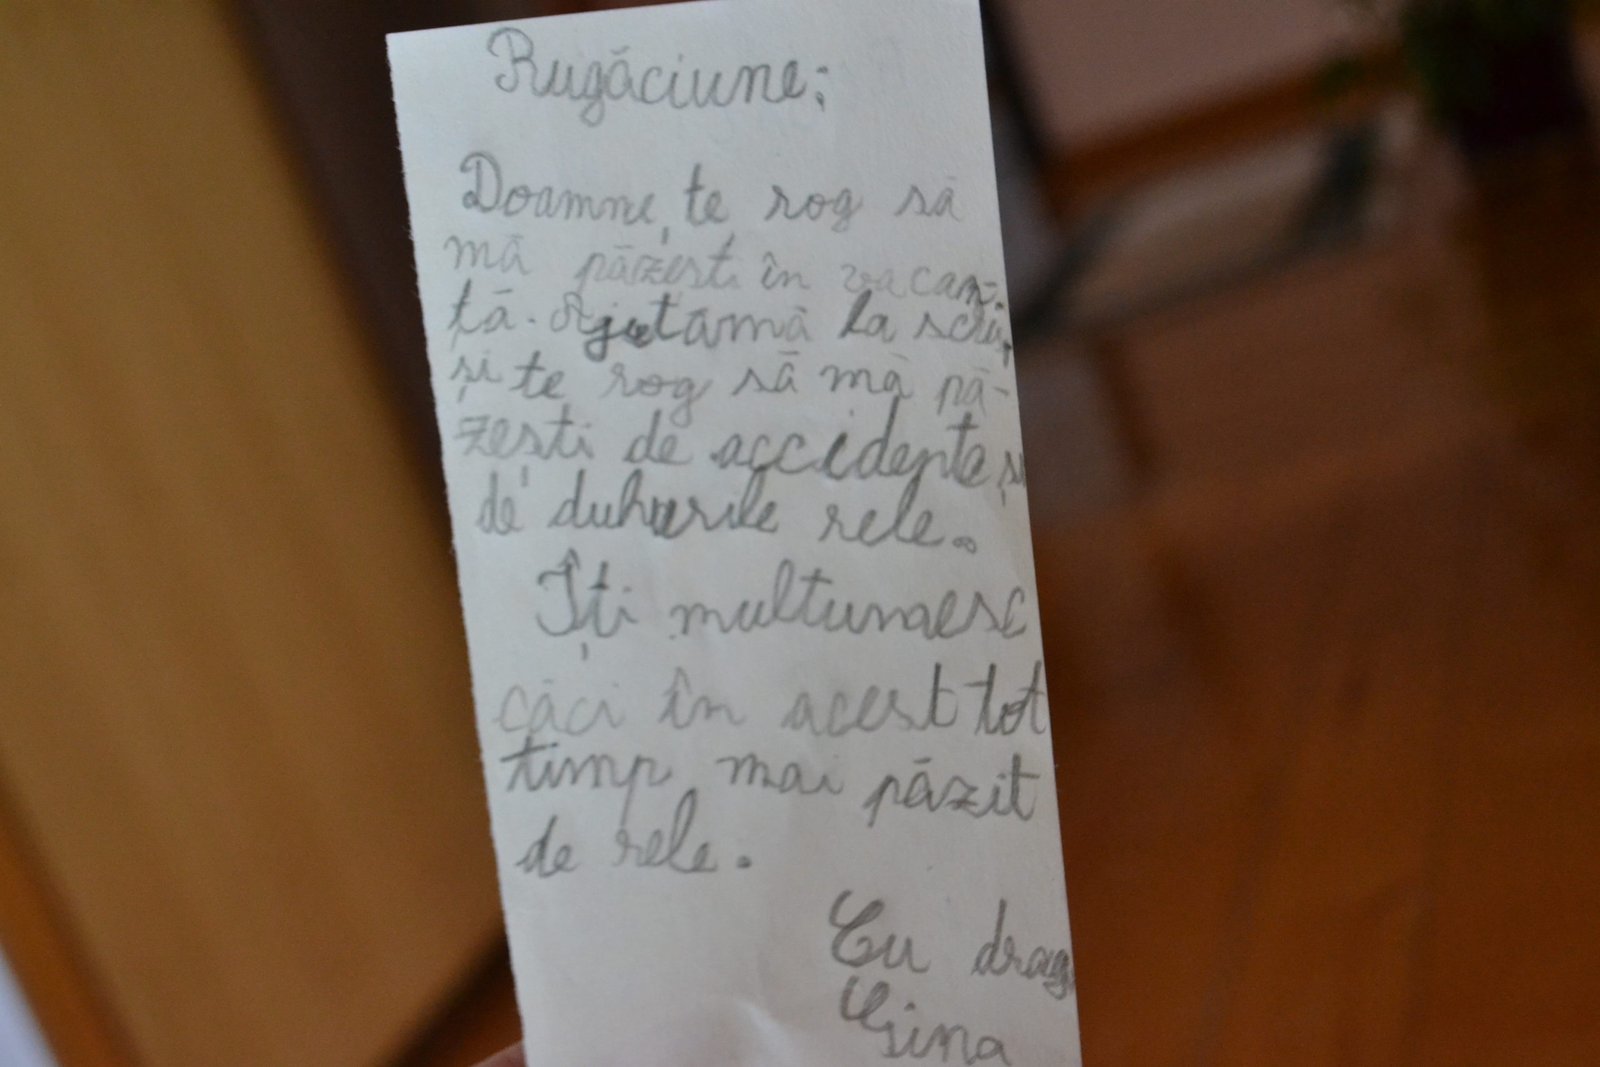 Rugăciune:
Doamne, te rog să
mă păzesti în vacan-
ță. Ajutămă la scris,
și te rog să mă pă-
zești de accidente și
de duhurile rele.
Îți multumesc
căci în acest tot
timp mai păzit
de rele.
Cu drag
Gina